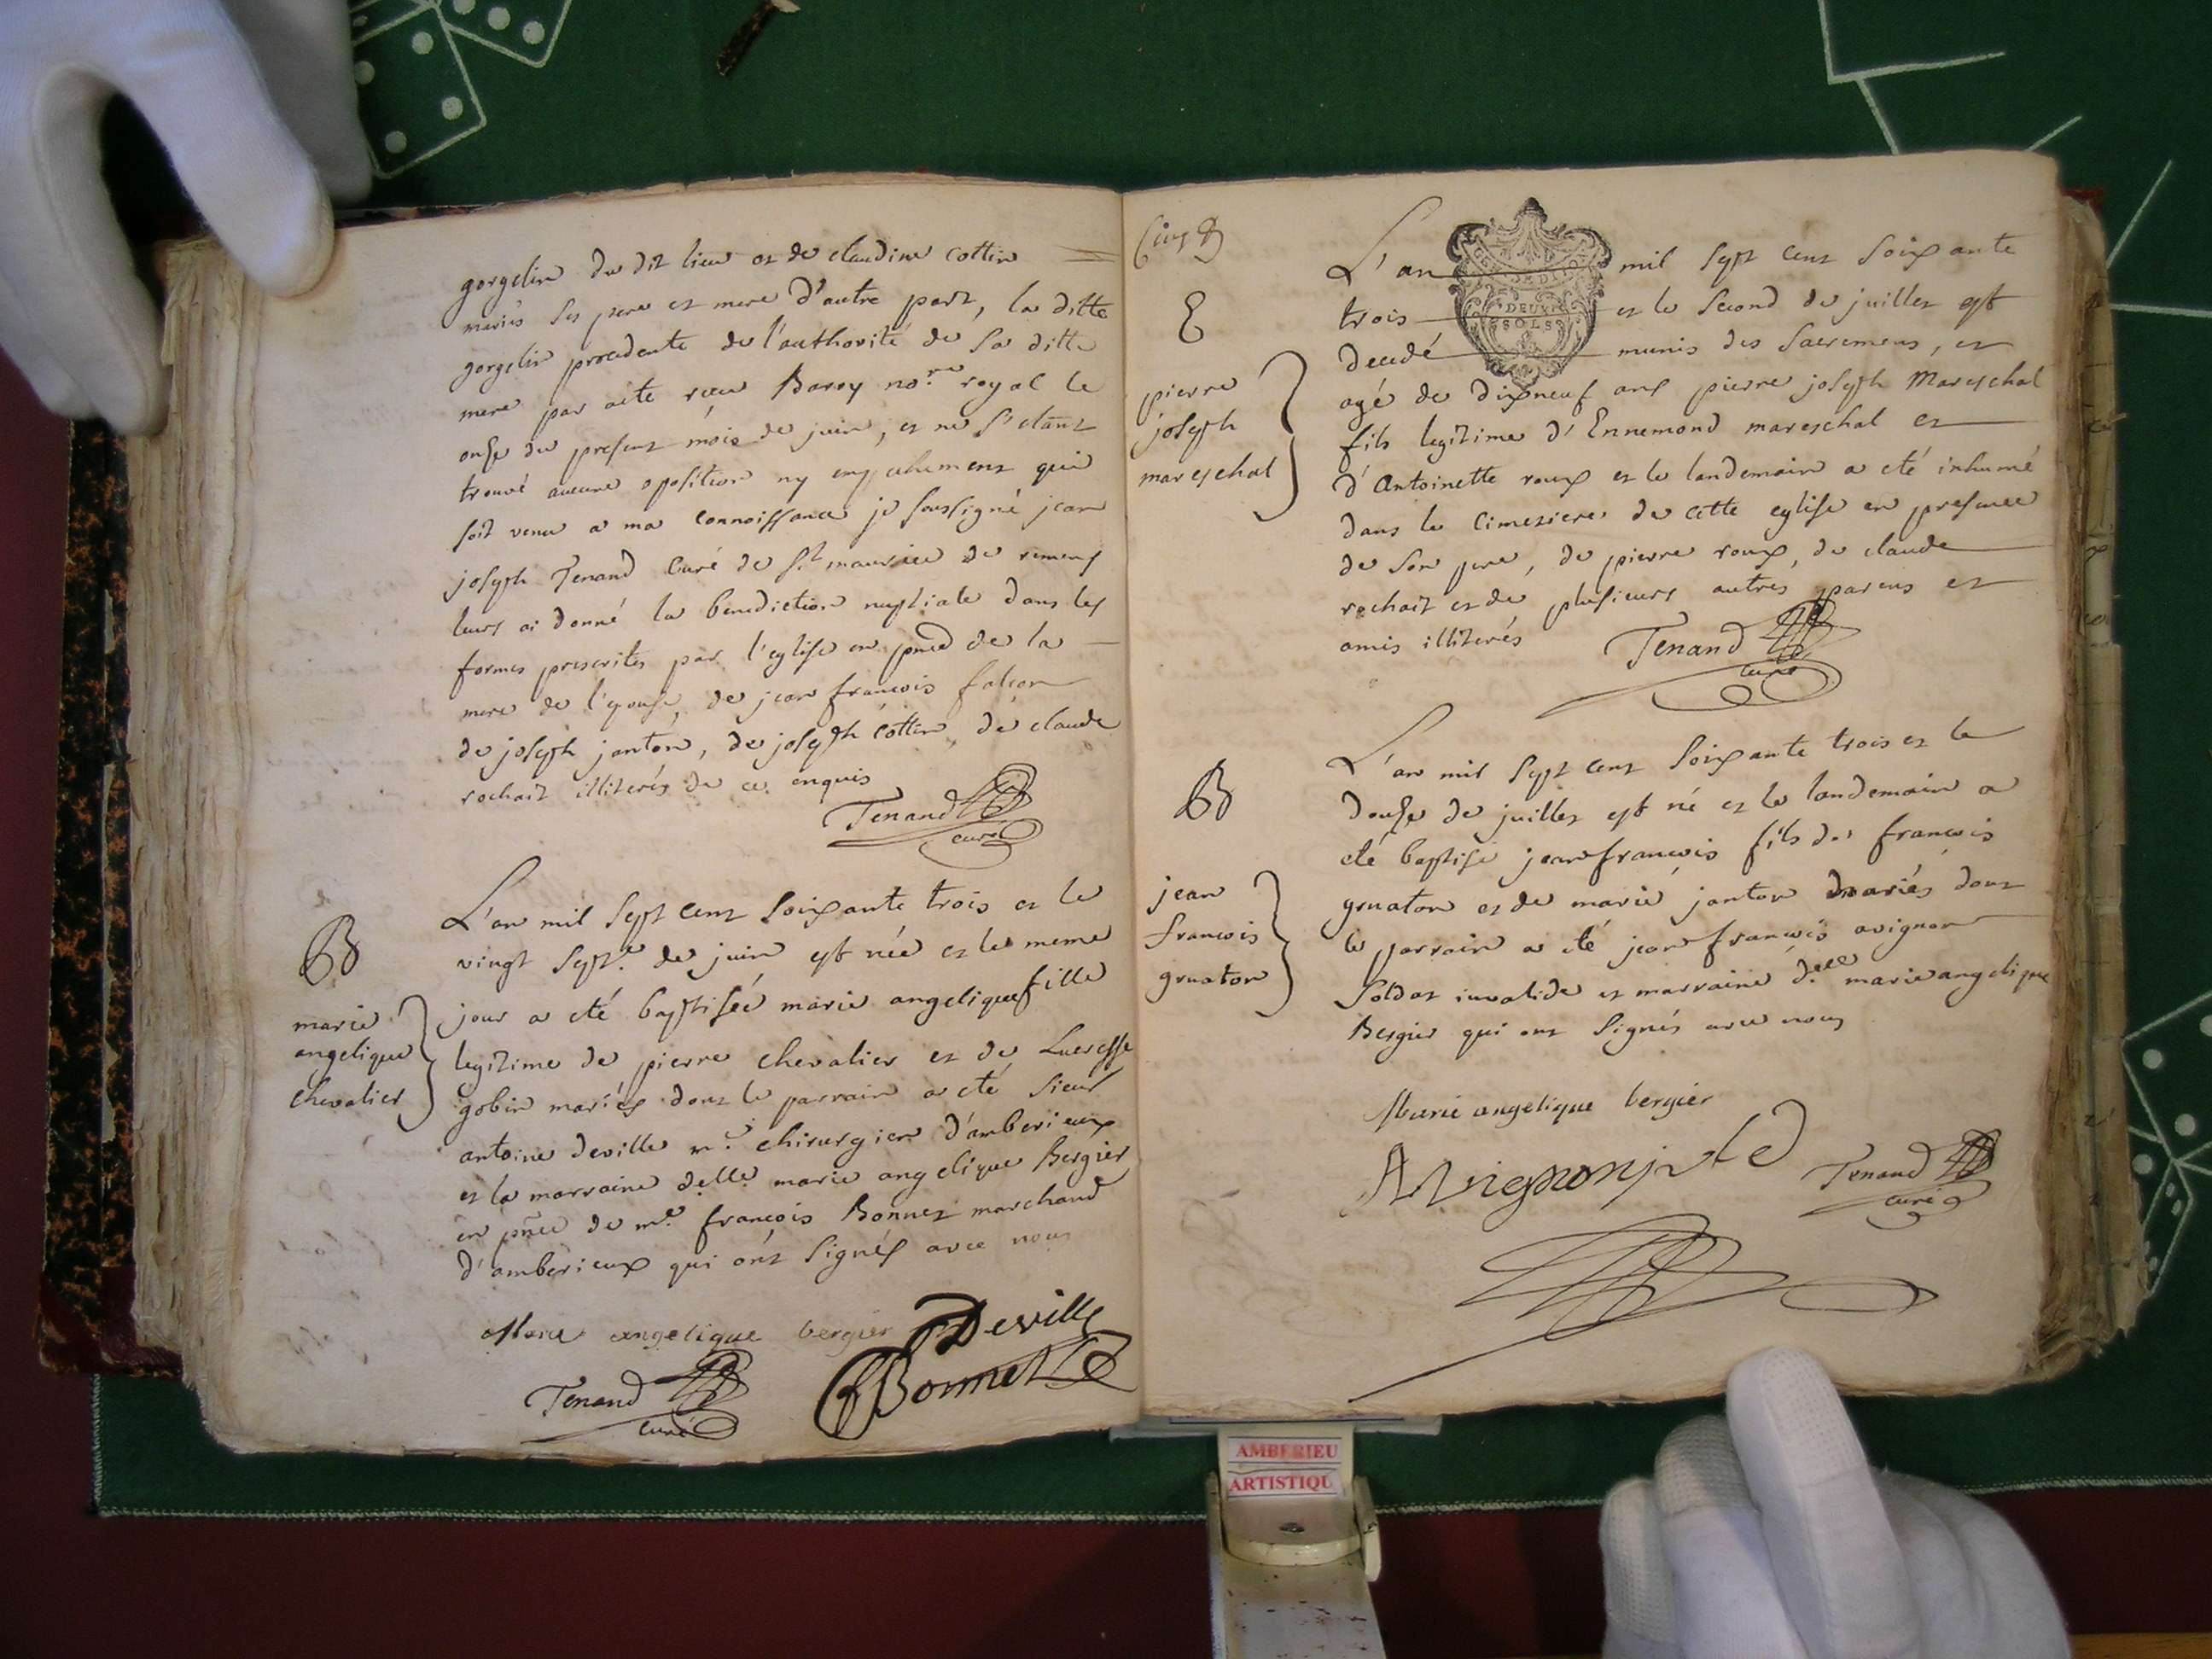 gorgelin du dit lieu et de claudine cottin
mariés ses pere et mere d'autre part, la ditte
gorgelin procedente de l'authorité de sa ditte
mere par acte reçu Baroy no.re royal le
onse du present mois de juin, et ne s'etant
trouvé aucune oposition ny empechement qui
soit venu a ma connoissance je soussigné jean
joseph Tenand Curé de St maurice de remens
leurs ai donné la benediction nuptiale dans les
formes prescrites par l'eglise en pnce de la
mere de l'epouse, de jean francois falcon
de joseph janton, de joseph cottin, de claude
rochait illiterés de ce enquis
Tenand
curé
B
marie
angelique
chevalier
L'an mil sept cent soixante trois et le
vingt sept.e de juin est née et le meme
jour a eté baptisée marie angelique fille
legitime de pierre chevalier et de Lucresse
gobin mariés dont le parrain a eté sieur
antoine deville m.e chirurgien d'amberieux
et la marraine delle marie angelique Bergier
en pnce de m.e françois Bonnet marchand
d'amberieux qui ont signés avec nous
Marie angelique bergier
Deville
Tenand
curé
Bonnet
Cinq
E
pierre
joseph
mareschal
L'an mil sept cent soixante
trois et le second de juillet est
decedé munis des sacremens, et
agé de dixneuf ans pierre joseph Mareschal
fils legitime d'Ennemond mareschal et
d'Antoinette roux et le landemain a eté inhumé
dans le cimetiere de cette eglise en presence
de son pere, de pierre roux, de claude
rochait et de plusieurs autres parens et
amis illiterés
Tenand
curé
DEUX
SOLS
B
jean
francois
gruaton
L'an mil sept cent soixante trois et le
douse de juillet est né et le landemain a
eté baptisé jean francois fils de francois
gruaton et de marie janton mariés dont
le parrain a eté jean francois avignon
soldat invalide et marraine d.elle marie angelique
Bergier qui ont signés avec nous
Marie angelique bergier
Tenand
curé
AMBERIEU
ARTISTIQU